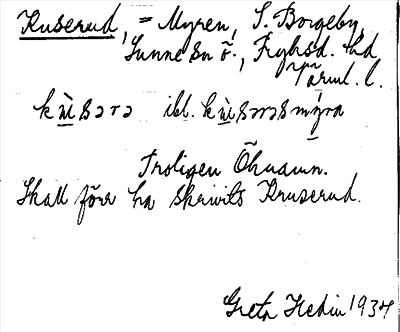 Kuserud, = Myren, S. Borgeby,
Sunne sn ö., Fryksd. hd
Värml. l.
kùsərə ibl. kùsərəsmýra
Troligen Öknamn.
Skall förr ha skrivits Kruserud.
Greta Hedin 1934